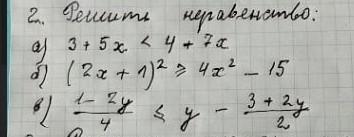 2. Решить неравенство:
а) 3 + 5x < 4 + 7x
б) (2x + 1)² ≥ 4x² - 15
в) (1 - 2y)/4 ≤ y - (3 + 2y)/2